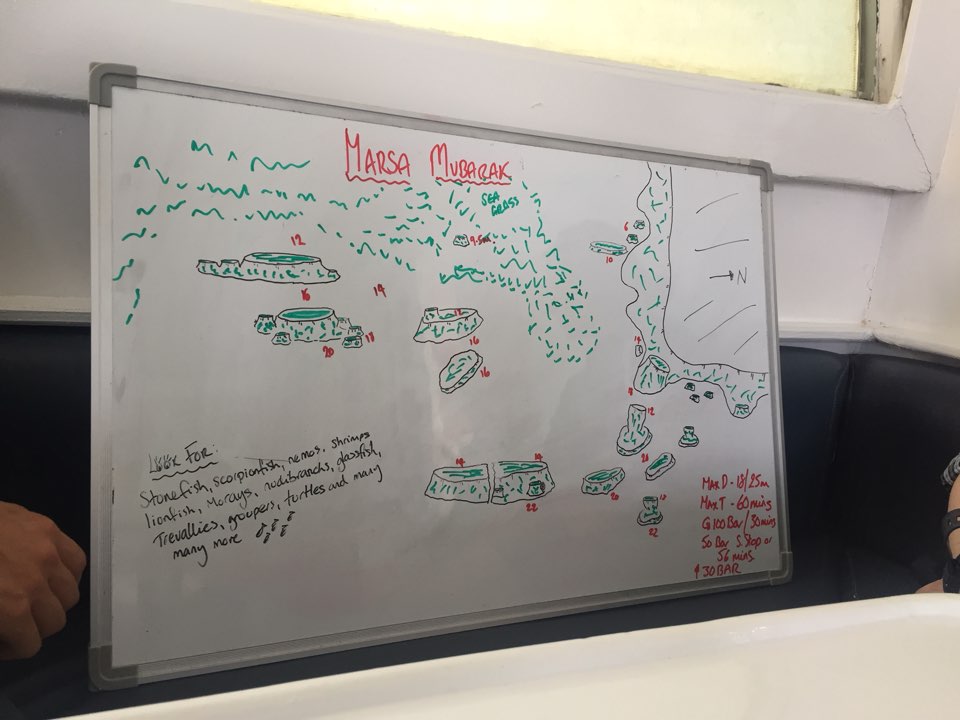 MARSA MUBARAK
SEA
GRASS
12
9.5m
6
10
16
14
12
18
20
16
16
N
12
14
14
22
20
20
12
22
LOOK FOR:
Stonefish, scorpionfish, nemos, shrimps
lionfish, Morays, nudibranchs, glassfish,
Trevallies, groupers, turtles and many
many more
MAX D - 18/25m
MAX T - 60 mins
@100 Bar/30 mins
50 Bar S.Stop or
56 mins
30 BAR